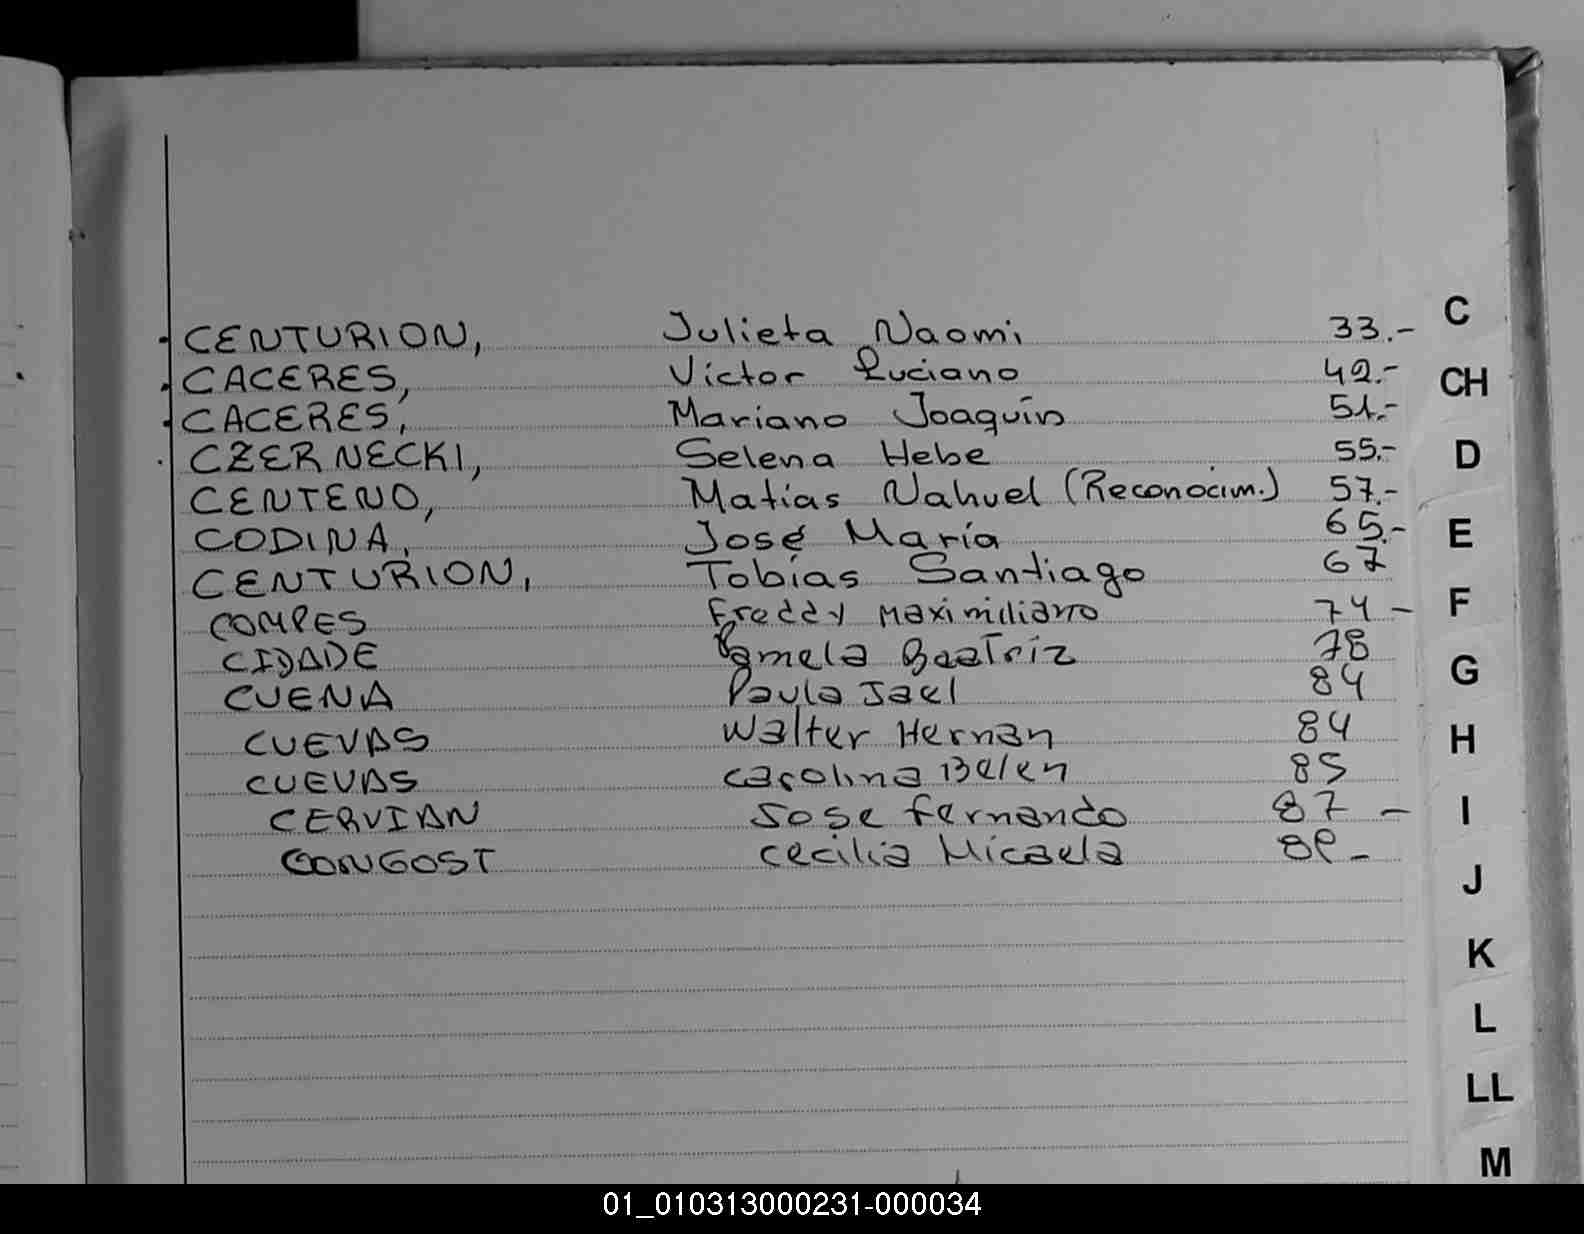 C
CENTURION, Julieta Naomi 33.-
CACERES, Victor Luciano 42.-
CH
CACERES, Mariano Joaquín 51.-
CZERNECKI, Selena Hebe 55.-
D
CENTENO, Matías Nahuel (Reconocim.) 57.-
CODINA, José María 65.-
E
CENTURION, Tobías Santiago 67
COMPES Freddy Maximiliano 74 -
F
CIDADE Pamela Beatriz 78
CUENA Paula Jael 84
G
CUEVAS Walter Hernan 84
H
CUEVAS Carolina Belen 85
CERVIAN Jose Fernando 87 -
I
CONGOST Cecilia Micaela 89 -
J
K
L
LL
M
01_010313000231-000034